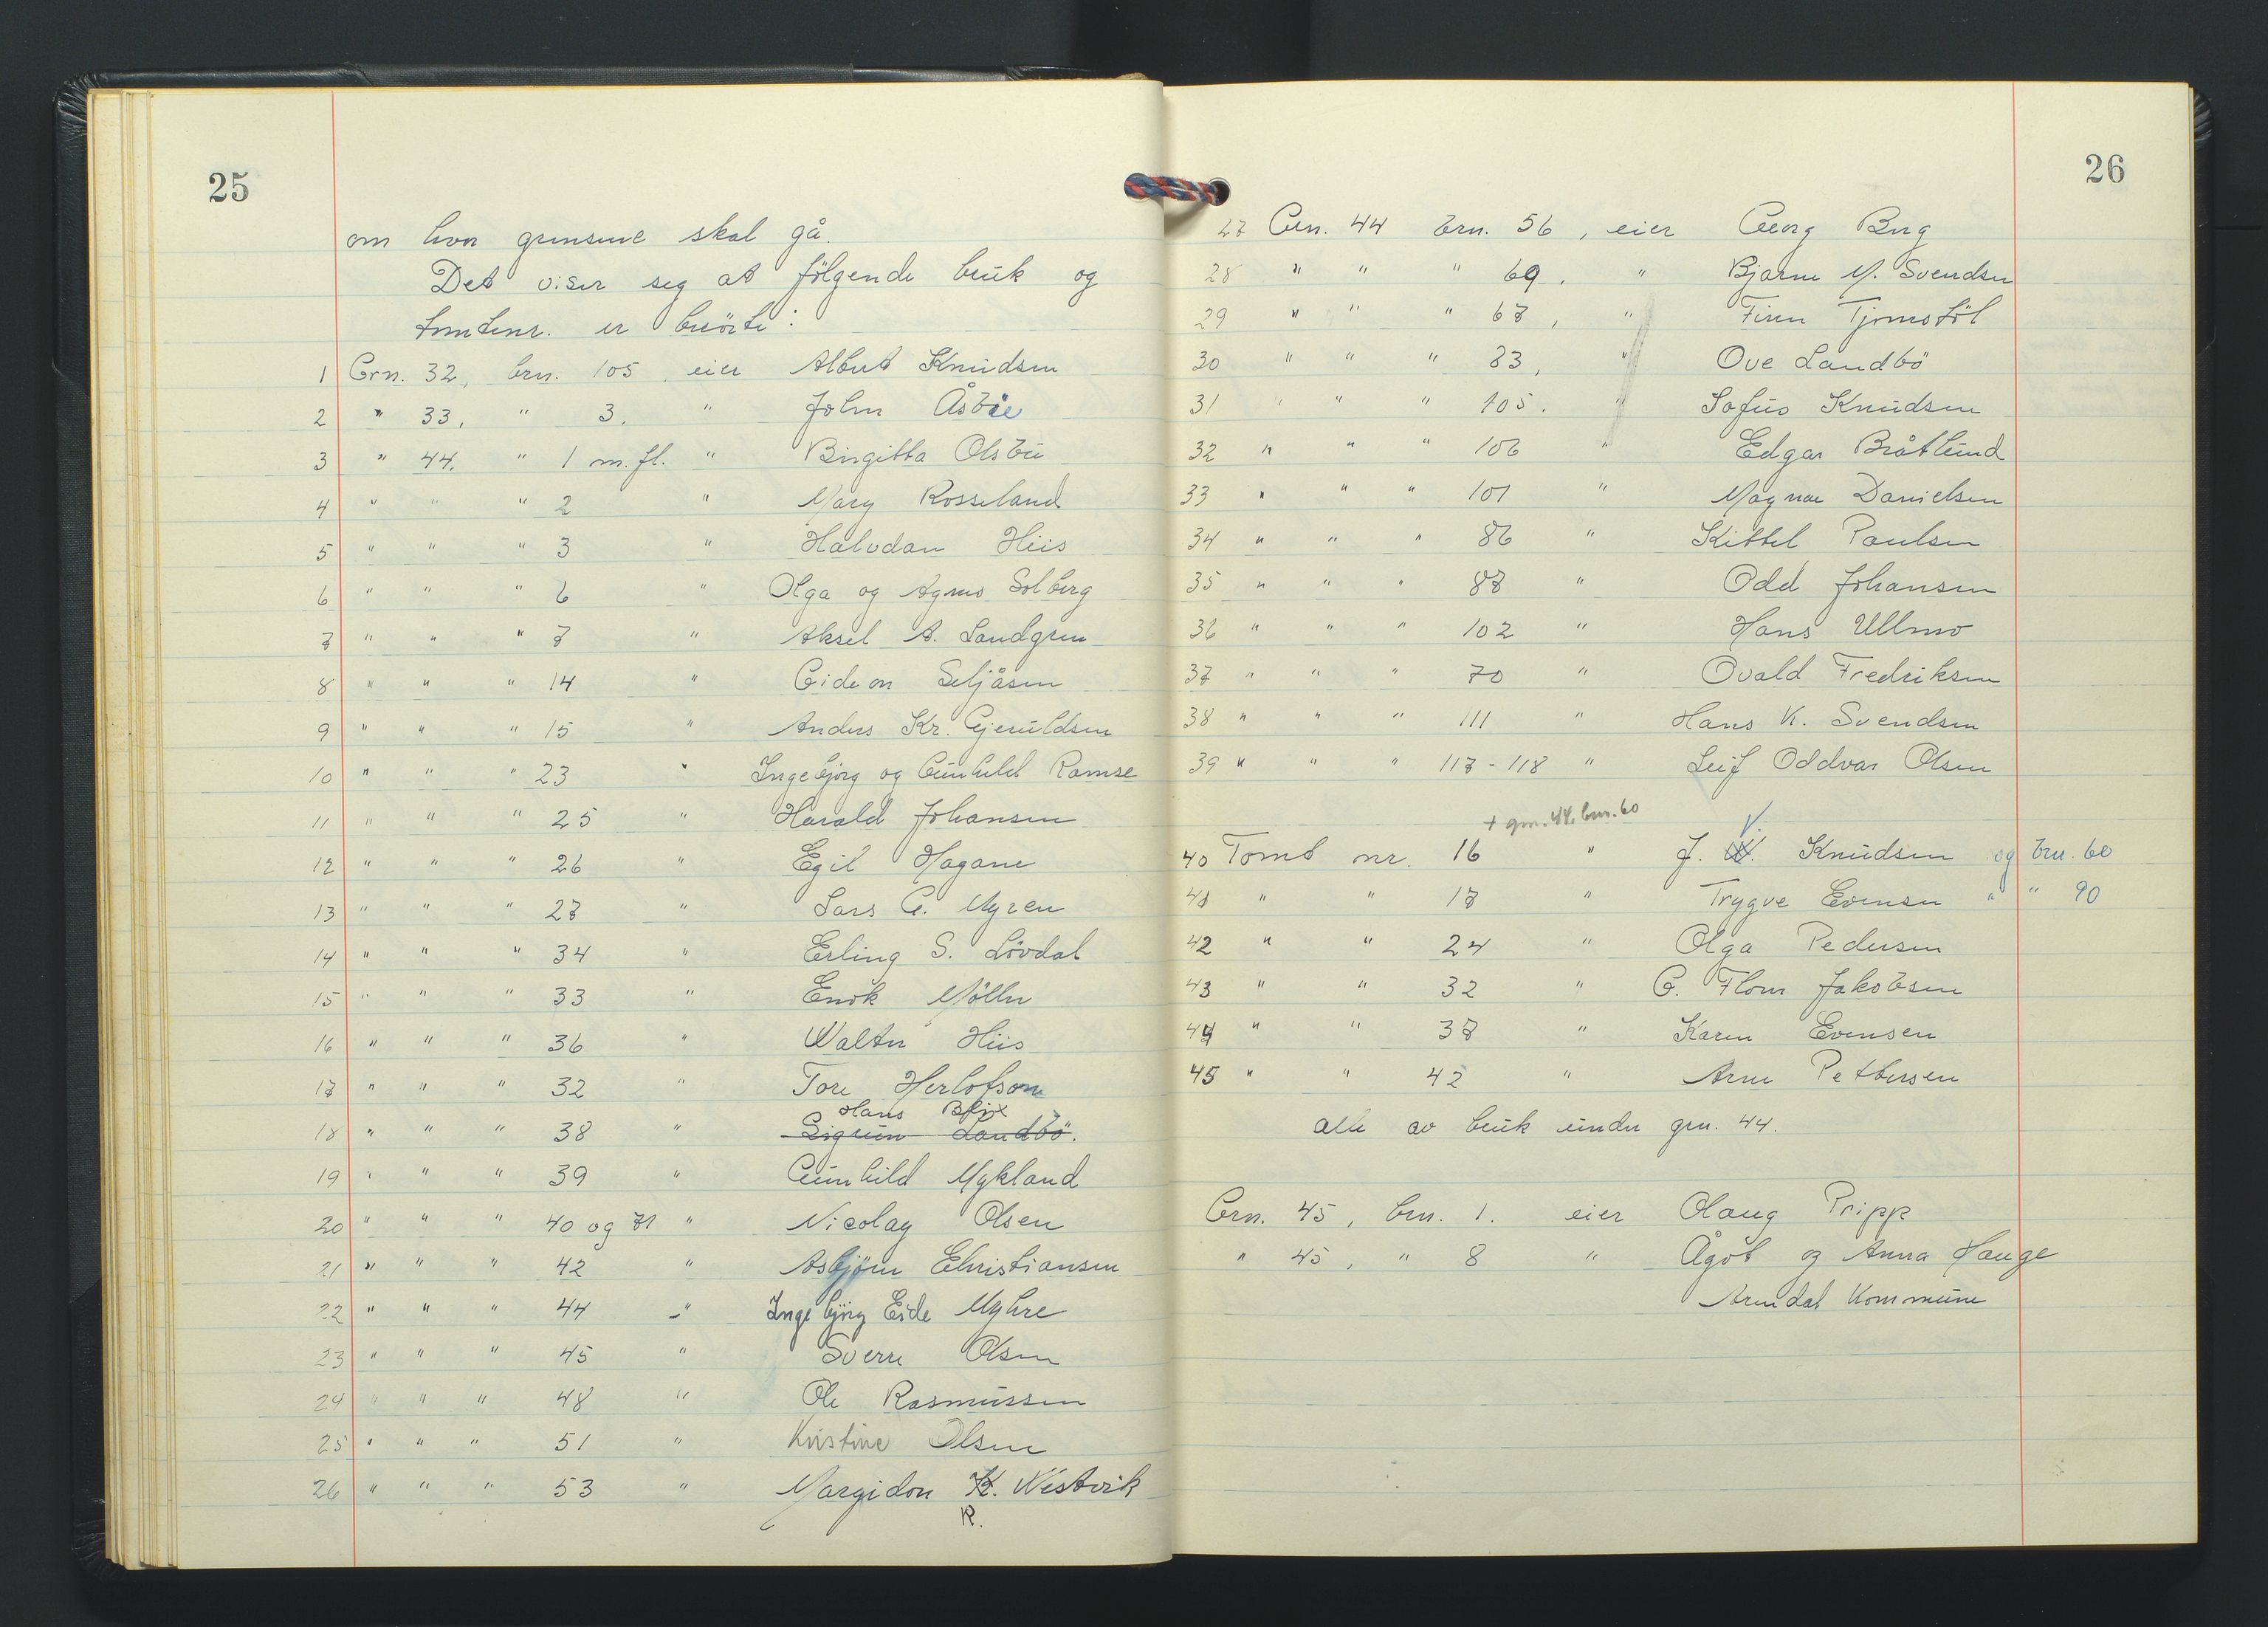 25
om hvor grensene skal gå.
Det viser seg at følgende bruk og
tomtenr. er berörte:
1 Grn. 32, brn. 105, eier Albert Knudsen
2 " 33, " 3. " John Åsbie
3 " 44. " 1 m.fl. " Birgitta Olsbu
4 " " " 2 " Mary Rosseland
5 " " " 3 " Halvdan Hiis
6 " " " 6 " Olga og Agnes Solberg
7 " " " 7 " Aksel A. Landgren
8 " " " 14 " Gideon Seljåsen
9 " " " 15 " Anders Kr. Gjeruldsen
10 " " " 23 " Ingebjørg og Gunhild Ramse
11 " " " 25 " Harald Johansen
12 " " " 26 " Egil Hagane
13 " " " 27 " Lars G. Myren
14 " " " 34 " Erling S. Lövdal
15 " " " 33 " Enok Möller
16 " " " 36 " Walter Hiis
17 " " " 32 " Tore Herlofson
Hans Blix
18 " " " 38 " Sigrun Landbö.
19 " " " 39 " Gunhild Mykland
20 " " " 40 og 71 " Nicolay Olsen
21 " " " 42 " Asbjørn Christiansen
22 " " " 44 " Ingebjörg Eide Myhre
23 " " " 45 " Sverre Olsen
24 " " " 48 " Ole Rasmussen
25 " " " 51 " Kristine Olsen
26 " " " 53 " Margidon K. Westvik
R.
26
27 Grn. 44 brn. 56, eier Georg Berg
28 " " " 69, " Bjarne M. Svendsen
29 " " " 67, " Finn Tjomstöl
30 " " " 83, " Ove Landbö
31 " " " 105. " Sofus Knudsen
32 " " " 106 " Edgar Bråtlund
33 " " " 101 " Magnar Danielsen
34 " " " 86 " Kittel Paulsen
35 " " " 87 " Odd Johansen
36 " " " 102 " Hans Ullmo
37 " " " 70 " Ovald Fredriksen
38 " " " 111 " Hans K. Svendsen
39 " " " 117-118 " Leif Oddvar Olsen
+ grn. 44, brn. 60
V.
40 Tomt nr. 16 " J. W. Knudsen og brn. 60
41 " " 17 " Trygve Evensen " " 90
42 " " 24 " Olga Pedersen
43 " " 32 " G. Flom Jakobsen
44 " " 37 " Karen Evensen
45 " " 42 " Arne Pettersen
alle av bruk under grn. 44.
Grn. 45, brn. 1. eier Olaug Pripp
" 45, " 8 " Ågot og Anna Hauge
Arendal Kommune